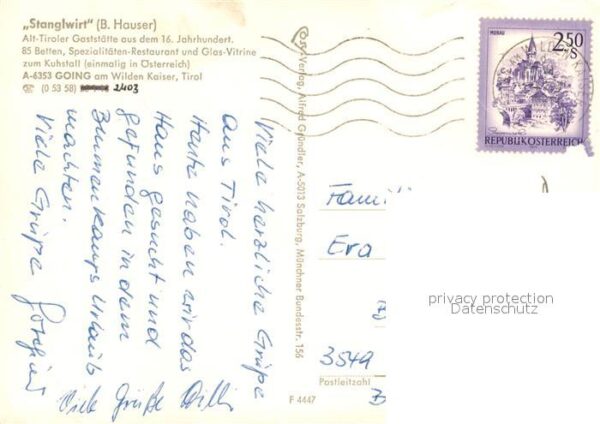 „Stanglwirt" (B. Hauser)
Alt-Tiroler Gaststätte aus dem 16. Jahrhundert.
85 Betten, Spezialitäten-Restaurant und Glas-Vitrine
zum Kuhstall (einmalig in Österreich)
A-6353 GOING am Wilden Kaiser, Tirol
(0 53 58) 2403
Viele herzliche Grüße
aus Tirol.
Heute haben wir das
Haus gesucht und
gefunden in dem
Urlaub
machten.
Viele Grüße
Viele Grüße Willi
Verlag, Alfred Gründler, A-5013 Salzburg, Münchner Bundesstr. 156
F 4447
MURAU
2.50
S
REPUBLIK ÖSTERREICH
Famil
Era
3549
Postleitzahl
privacy protection
Datenschutz